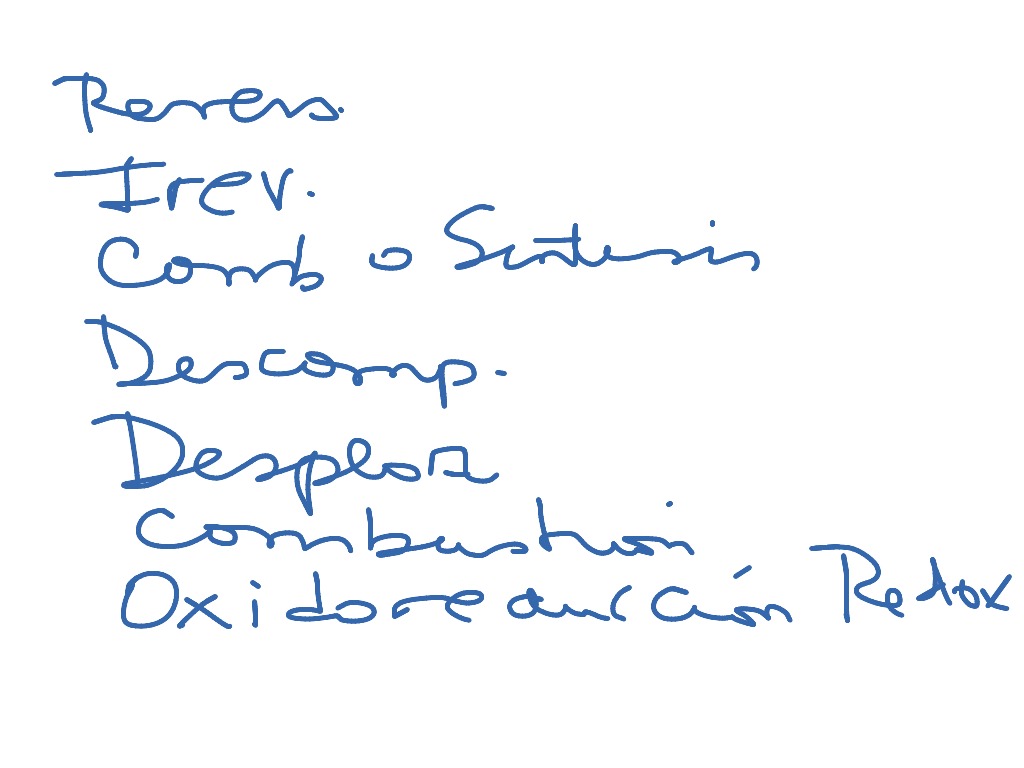 Revers.
Irrev.
Comb o Sintesis
Descomp.
Desplaz
Combustion
Oxidoreducción Redox